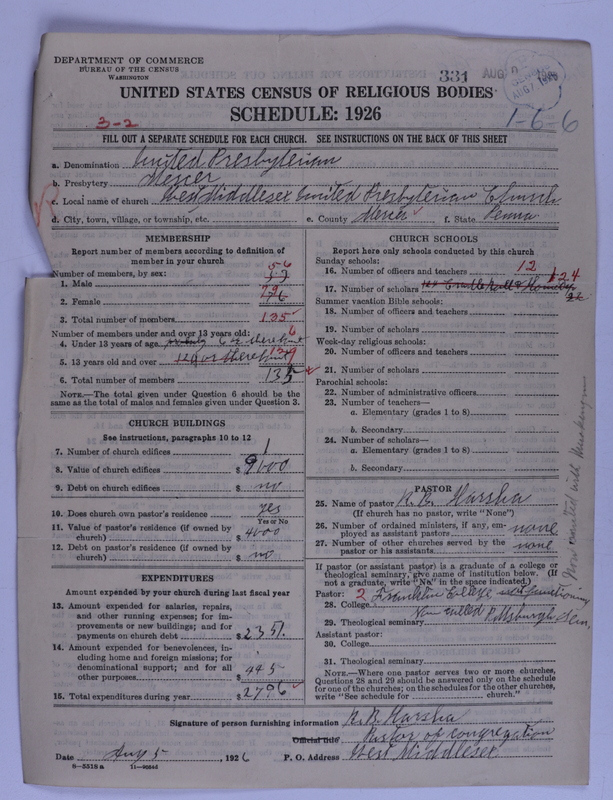 DEPARTMENT OF COMMERCE
BUREAU OF THE CENSUS
WASHINGTON
331 AUG
UNITED STATES CENSUS OF RELIGIOUS BODIES
SCHEDULE: 1926
3-2
1-6-6
FILL OUT A SEPARATE SCHEDULE FOR EACH CHURCH. SEE INSTRUCTIONS ON THE BACK OF THIS SHEET
a. Denomination United Presbyterian
b. Presbytery Mercer
c. Local name of church West Middlesex United Presbyterian Church
d. City, town, village, or township, etc. e. County Mercer f. State Penna
MEMBERSHIP
Report number of members according to definition of
member in your church
Number of members, by sex:
1. Male 56 57
2. Female 79 76
3. Total number of members 135
Number of members under and over 13 years old:
4. Under 13 years of age 6 or thereabout 6
5. 13 years old and over 120 or thereabout 129
6. Total number of members 135
NOTE.—The total given under Question 6 should be
same as the total of males and females given under Question 3.
CHURCH BUILDINGS
See instructions, paragraphs 10 to 12
7. Number of church edifices 1
8. Value of church edifices $ 9000
9. Debt on church edifices $ no
10. Does church own pastor's residence yes
Yes or No
11. Value of pastor's residence (if owned by
church) $ 4000
12. Debt on pastor's residence (if owned by
church) $ no
EXPENDITURES
Amount expended by your church during last fiscal year
13. Amount expended for salaries, repairs,
and other running expenses; for im-
provements or new buildings; and for
payments on church debt $ 2351.
14. Amount expended for benevolences, in-
cluding home and foreign missions; for
denominational support; and for all
other purposes $ 445
15. Total expenditures during year $ 2796
CHURCH SCHOOLS
Report here only schools conducted by this church
Sunday schools:
16. Number of officers and teachers 12
17. Number of scholars Cradle Roll & Home 124
Summer vacation Bible schools:
18. Number of officers and teachers
19. Number of scholars
Week-day religious schools:
20. Number of officers and teachers
21. Number of scholars
Parochial schools:
22. Number of administrative officers
23. Number of teachers—
a. Elementary (grades 1 to 8)
b. Secondary
24. Number of scholars—
a. Elementary (grades 1 to 8)
b. Secondary
PASTOR
25. Name of pastor R. B. Harsha
(If church has no pastor, write "None")
26. Number of ordained ministers, if any, em-
ployed as assistant pastors none
27. Number of other churches served by the
pastor or his assistants none
If pastor (or assistant pastor) is a graduate of a college or
theological seminary, give name of institution below. (If
not a graduate, write "No" in the space indicated.)
Pastor: 2 Franklin College not functioning
28. College
Now united with Muskingum
29. Theological seminary Now called Pittsburgh Sem.
Assistant pastor:
30. College
31. Theological seminary
NOTE.—Where one pastor serves two or more churches,
Questions 28 and 29 should be answered only on the schedule
for one of the churches; on the schedules for the other churches,
write "See schedule for church."
Signature of person furnishing information R. B. Harsha
Official title Pastor of congregation
Date Aug 5, 1926 P. O. Address West Middlesex
8-5518 a